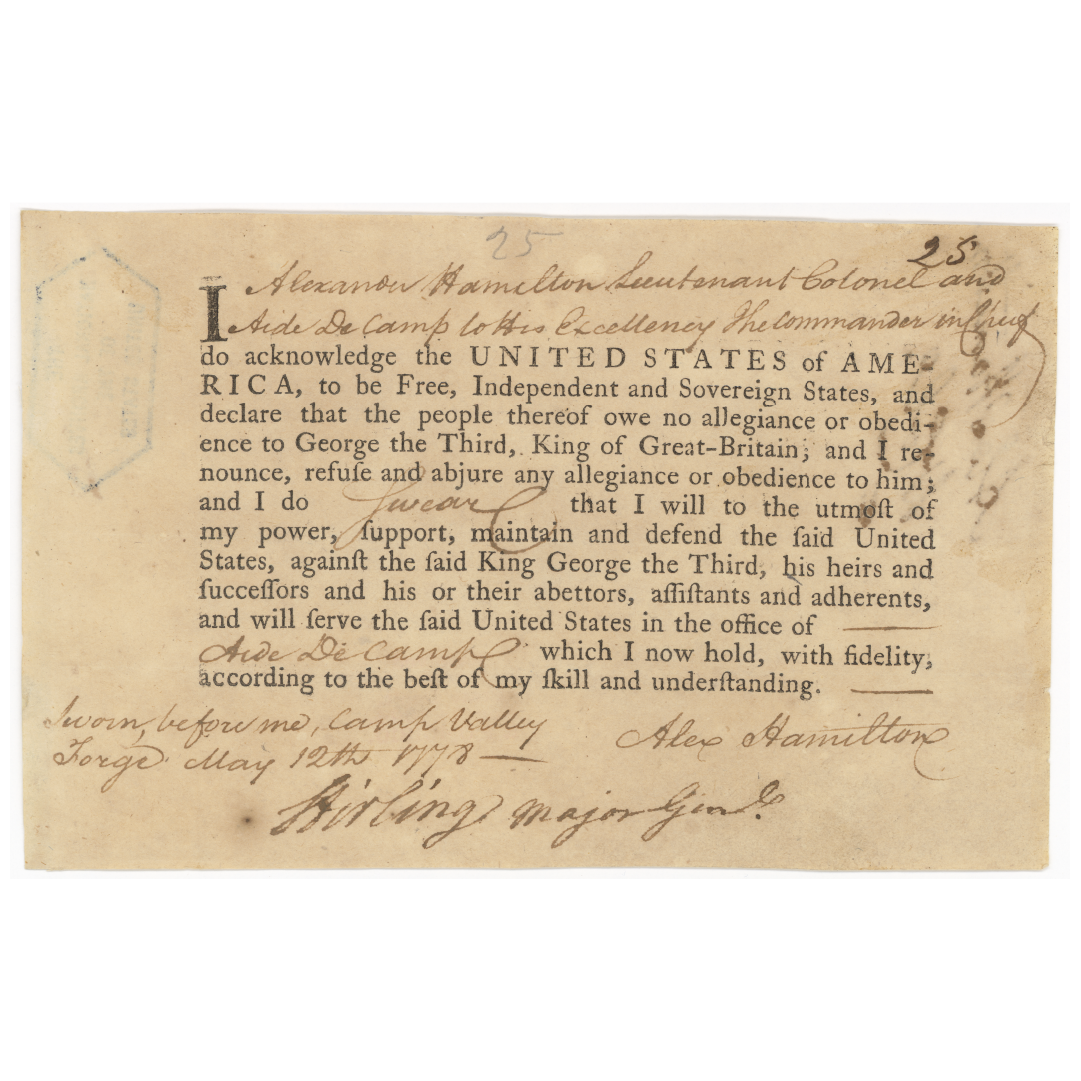 25
25
I Alexander Hamilton Lieutenant Colonel and
Aide De Camp to His Excellency The Commander in Chief
do acknowledge the UNITED STATES of AME-
RICA, to be Free, Independent and Sovereign States, and
declare that the people thereof owe no allegiance or obedi-
ence to George the Third, King of Great-Britain; and I re-
nounce, refuſe and abjure any allegiance or obedience to him;
and I do Swear that I will to the utmoſt of
my power, ſupport, maintain and defend the ſaid United
States, againſt the ſaid King George the Third, his heirs and
ſucceſſors and his or their abettors, aſſiſtants and adherents,
and will ſerve the ſaid United States in the office of
Aide De Camp which I now hold, with fidelity,
according to the beſt of my ſkill and underſtanding.
Sworn, before me, Camp Valley
Forge May 12th 1778 —
Alex Hamilton
Stirling Major Genl.